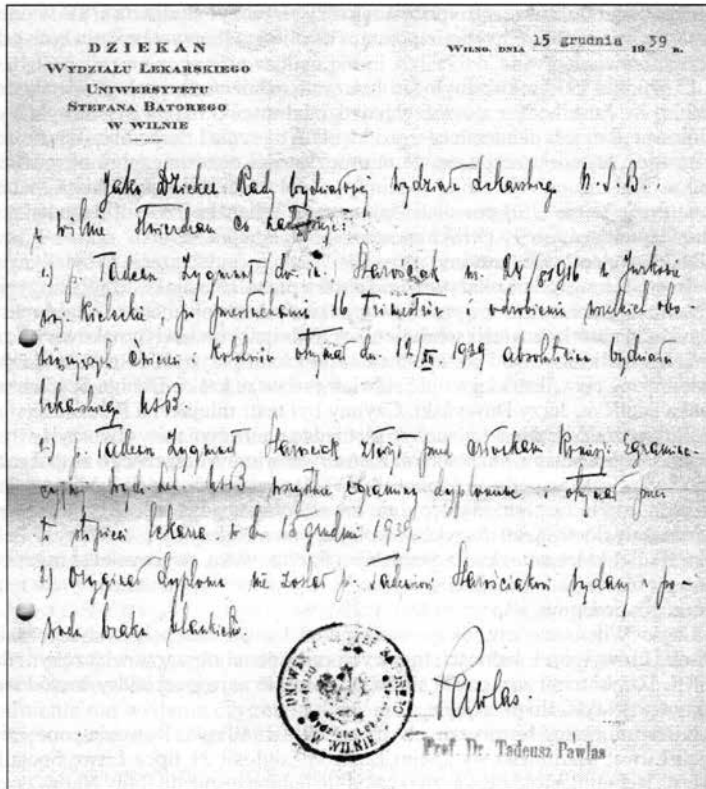 DZIEKAN
WYDZIAŁU LEKARSKIEGO
UNIWERSYTETU
STEFANA BATOREGO
W WILNIE
WILNO, DNIA 15 grudnia 1939 R.
Jako Dziekan Rady Wydziałowej Wydziału Lekarskiego U.S.B.
w Wilnie stwierdzam co następuje:
1.) p. Tadeusz Zygmunt dw. im. Starościak ur.
po przesłuchaniu 16 trimestrów i odrobieniu wszelkich obo-
wiązujących ćwiczeń i kolokwiów otrzymał dn. 1939 absolutorium Wydziału
Lekarskiego USB.
2.) p. Tadeusz Zygmunt złożył przed członkami Komisji Egzamina-
cyjnej USB wszystkie egzaminy dyplomowe i otrzymał
stopień lekarza w d. 15 grudnia 1939
3.) Oryginał dyplomu nie został p. wydany z po-
wodu braku blankietów
UNIWERSYTET
WILNIE
Pawlas
Prof. Dr. Tadeusz Pawlas